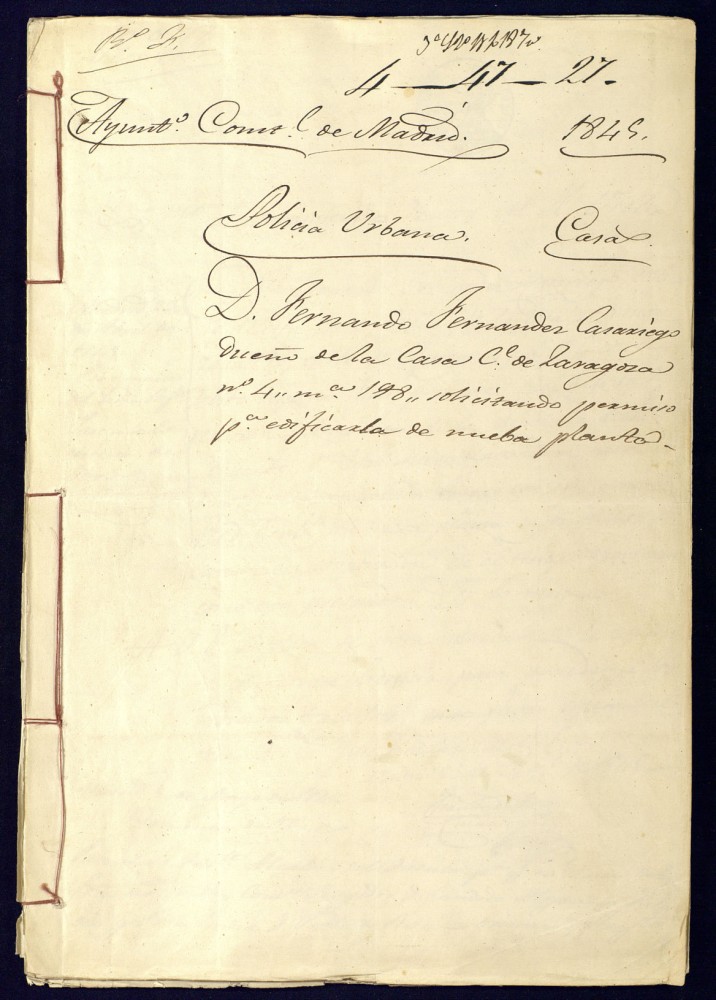 4 — 47 — 27.
Ayunt.º Const.l de Madrid. 1845.
Policia Urbana. Casas.
D. Fernando Fernandez Casariego
dueño de la Casa C.e de Zaragoza
nº 4,, m.na 198,, solicitando permiso
p.a edificarla de nueba planta